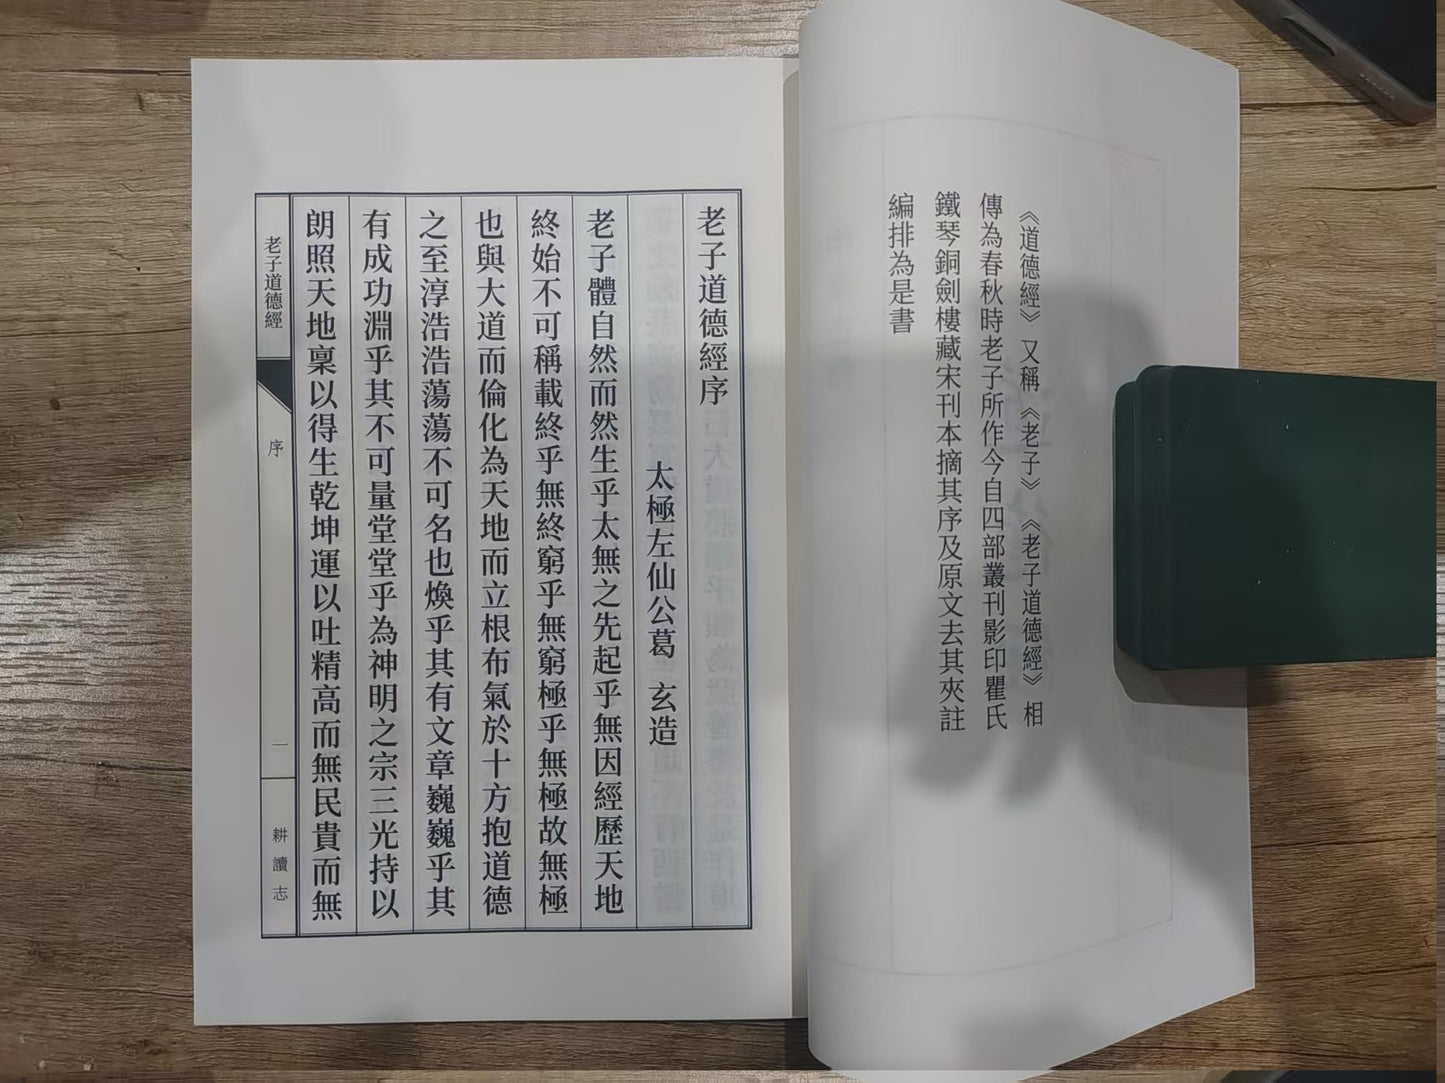 《道德經》又稱《老子》《老子道德經》相
傳為春秋時老子所作今自四部叢刊影印瞿氏
鐵琴銅劍樓藏宋刊本摘其序及原文去其夾註
編排為是書
老子道德經序
太極左仙公葛　玄造
老子體自然而然生乎太無之先起乎無因經歷天地
終始不可稱載終乎無終窮乎無窮極乎無極故無極
也與大道而倫化為天地而立根布氣於十方抱道德
之至淳浩浩蕩蕩不可名也煥乎其有文章巍巍乎其
有成功淵乎其不可量堂堂乎為神明之宗三光持以
朗照天地稟以得生乾坤運以吐精高而無民貴而無
老子道德經
序
一
耕讀志